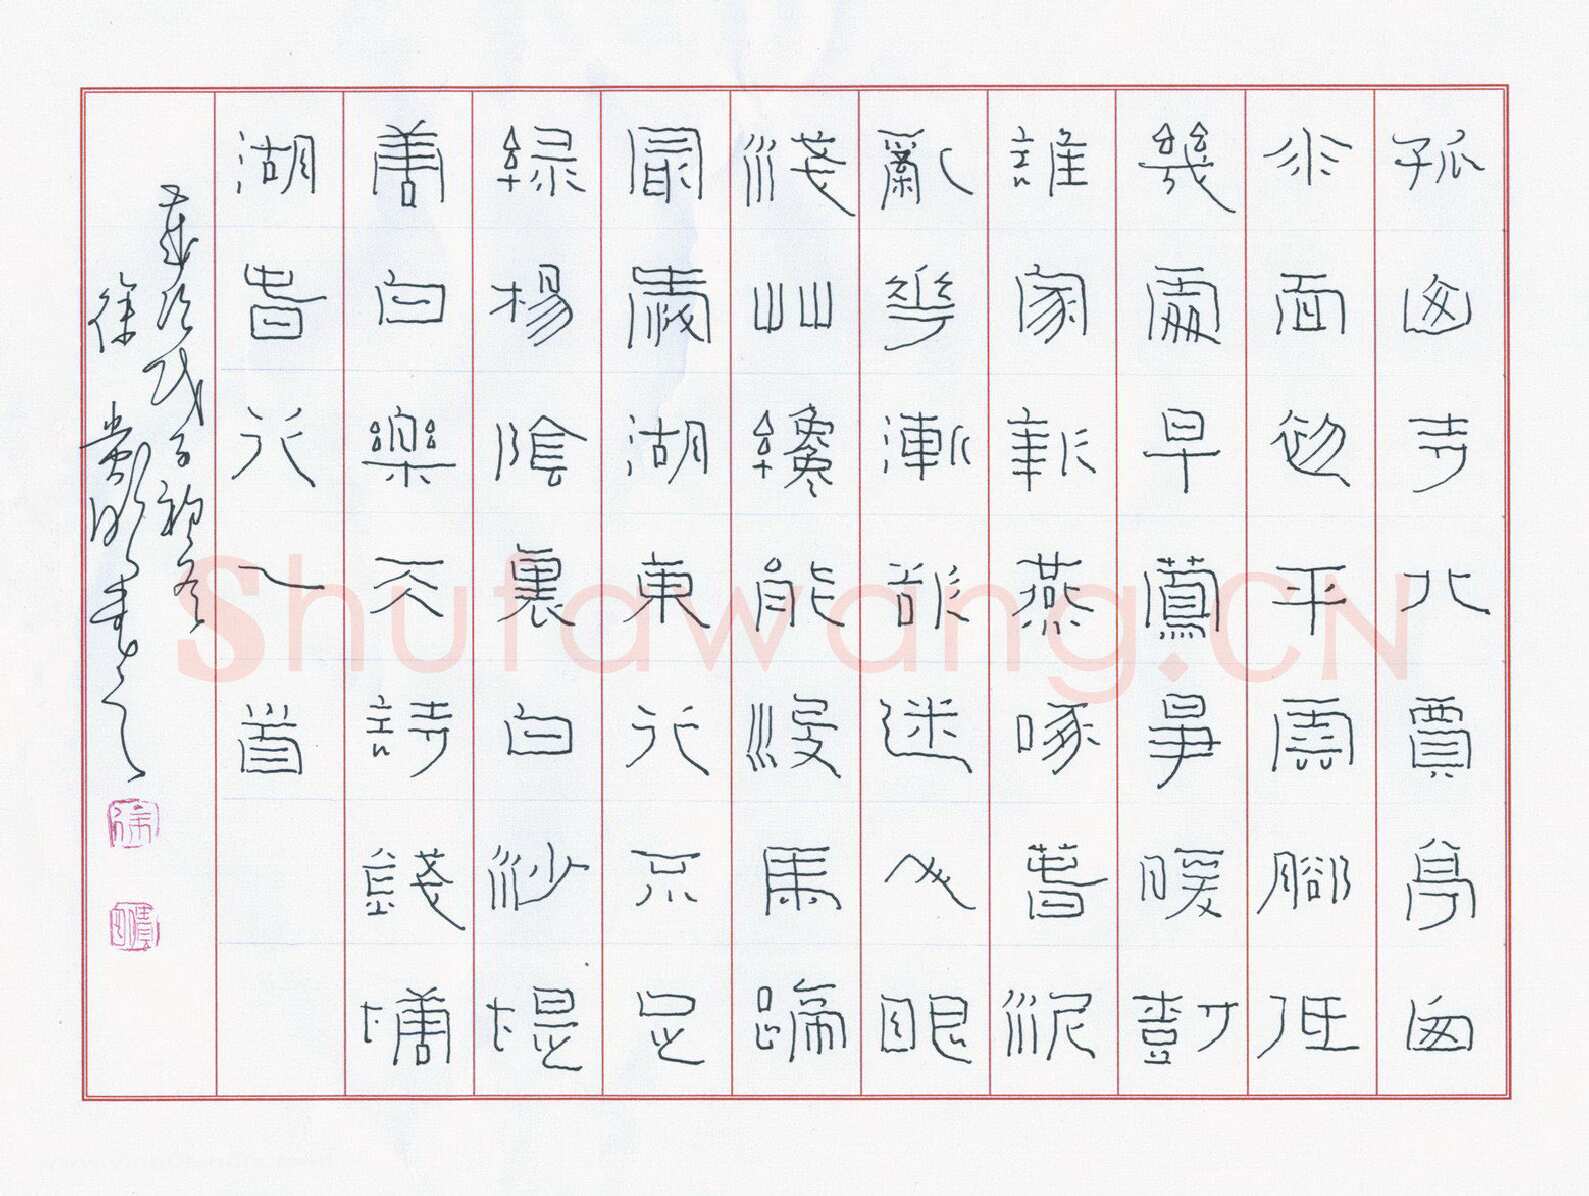 孤山寺北賈亭西
水面初平雲腳低
幾處早鶯爭暖樹
誰家新燕啄春泥
亂花漸欲迷人眼
淺艸纔能沒馬蹄
最愛湖東行不足
綠楊陰裏白沙堤
唐白樂天詩錢塘
湖春行一首
歲次戊子初冬
徐
Shufawang.CN